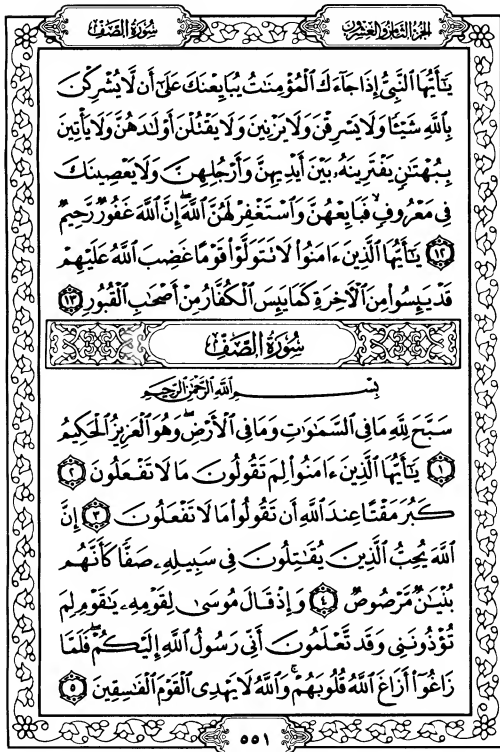 الجزء الثامن والعشرون
سورة الصف
يَـٰٓأَيُّهَا ٱلنَّبِىُّ إِذَا جَآءَكَ ٱلْمُؤْمِنَـٰتُ يُبَايِعْنَكَ عَلَىٰٓ أَن لَّا يُشْرِكْنَ
بِٱللَّهِ شَيْـًٔا وَلَا يَسْرِقْنَ وَلَا يَزْنِينَ وَلَا يَقْتُلْنَ أَوْلَـٰدَهُنَّ وَلَا يَأْتِينَ
بِبُهْتَـٰنٍ يَفْتَرِينَهُۥ بَيْنَ أَيْدِيهِنَّ وَأَرْجُلِهِنَّ وَلَا يَعْصِينَكَ
فِى مَعْرُوفٍ ۙ فَبَايِعْهُنَّ وَٱسْتَغْفِرْ لَهُنَّ ٱللَّهَ ۖ إِنَّ ٱللَّهَ غَفُورٌ رَّحِيمٌ
١٢ يَـٰٓأَيُّهَا ٱلَّذِينَ ءَامَنُوا۟ لَا تَتَوَلَّوْا۟ قَوْمًا غَضِبَ ٱللَّهُ عَلَيْهِمْ
قَدْ يَئِسُوا۟ مِنَ ٱلْـَٔاخِرَةِ كَمَا يَئِسَ ٱلْكُفَّارُ مِنْ أَصْحَـٰبِ ٱلْقُبُورِ ١٣
سورة الصف
بِسْمِ ٱللَّهِ ٱلرَّحْمَـٰنِ ٱلرَّحِيمِ
سَبَّحَ لِلَّهِ مَا فِى ٱلسَّمَـٰوَٰتِ وَمَا فِى ٱلْأَرْضِ ۖ وَهُوَ ٱلْعَزِيزُ ٱلْحَكِيمُ
١ يَـٰٓأَيُّهَا ٱلَّذِينَ ءَامَنُوا۟ لِمَ تَقُولُونَ مَا لَا تَفْعَلُونَ ٢
كَبُرَ مَقْتًا عِندَ ٱللَّهِ أَن تَقُولُوا۟ مَا لَا تَفْعَلُونَ ٣ إِنَّ
ٱللَّهَ يُحِبُّ ٱلَّذِينَ يُقَـٰتِلُونَ فِى سَبِيلِهِۦ صَفًّا كَأَنَّهُم
بُنْيَـٰنٌ مَّرْصُوصٌ ٤ وَإِذْ قَالَ مُوسَىٰ لِقَوْمِهِۦ يَـٰقَوْمِ لِمَ
تُؤْذُونَنِى وَقَد تَّعْلَمُونَ أَنِّى رَسُولُ ٱللَّهِ إِلَيْكُمْ ۖ فَلَمَّا
زَاغُوٓا۟ أَزَاغَ ٱللَّهُ قُلُوبَهُمْ ۚ وَٱللَّهُ لَا يَهْدِى ٱلْقَوْمَ ٱلْفَـٰسِقِينَ ٥
٥٥١